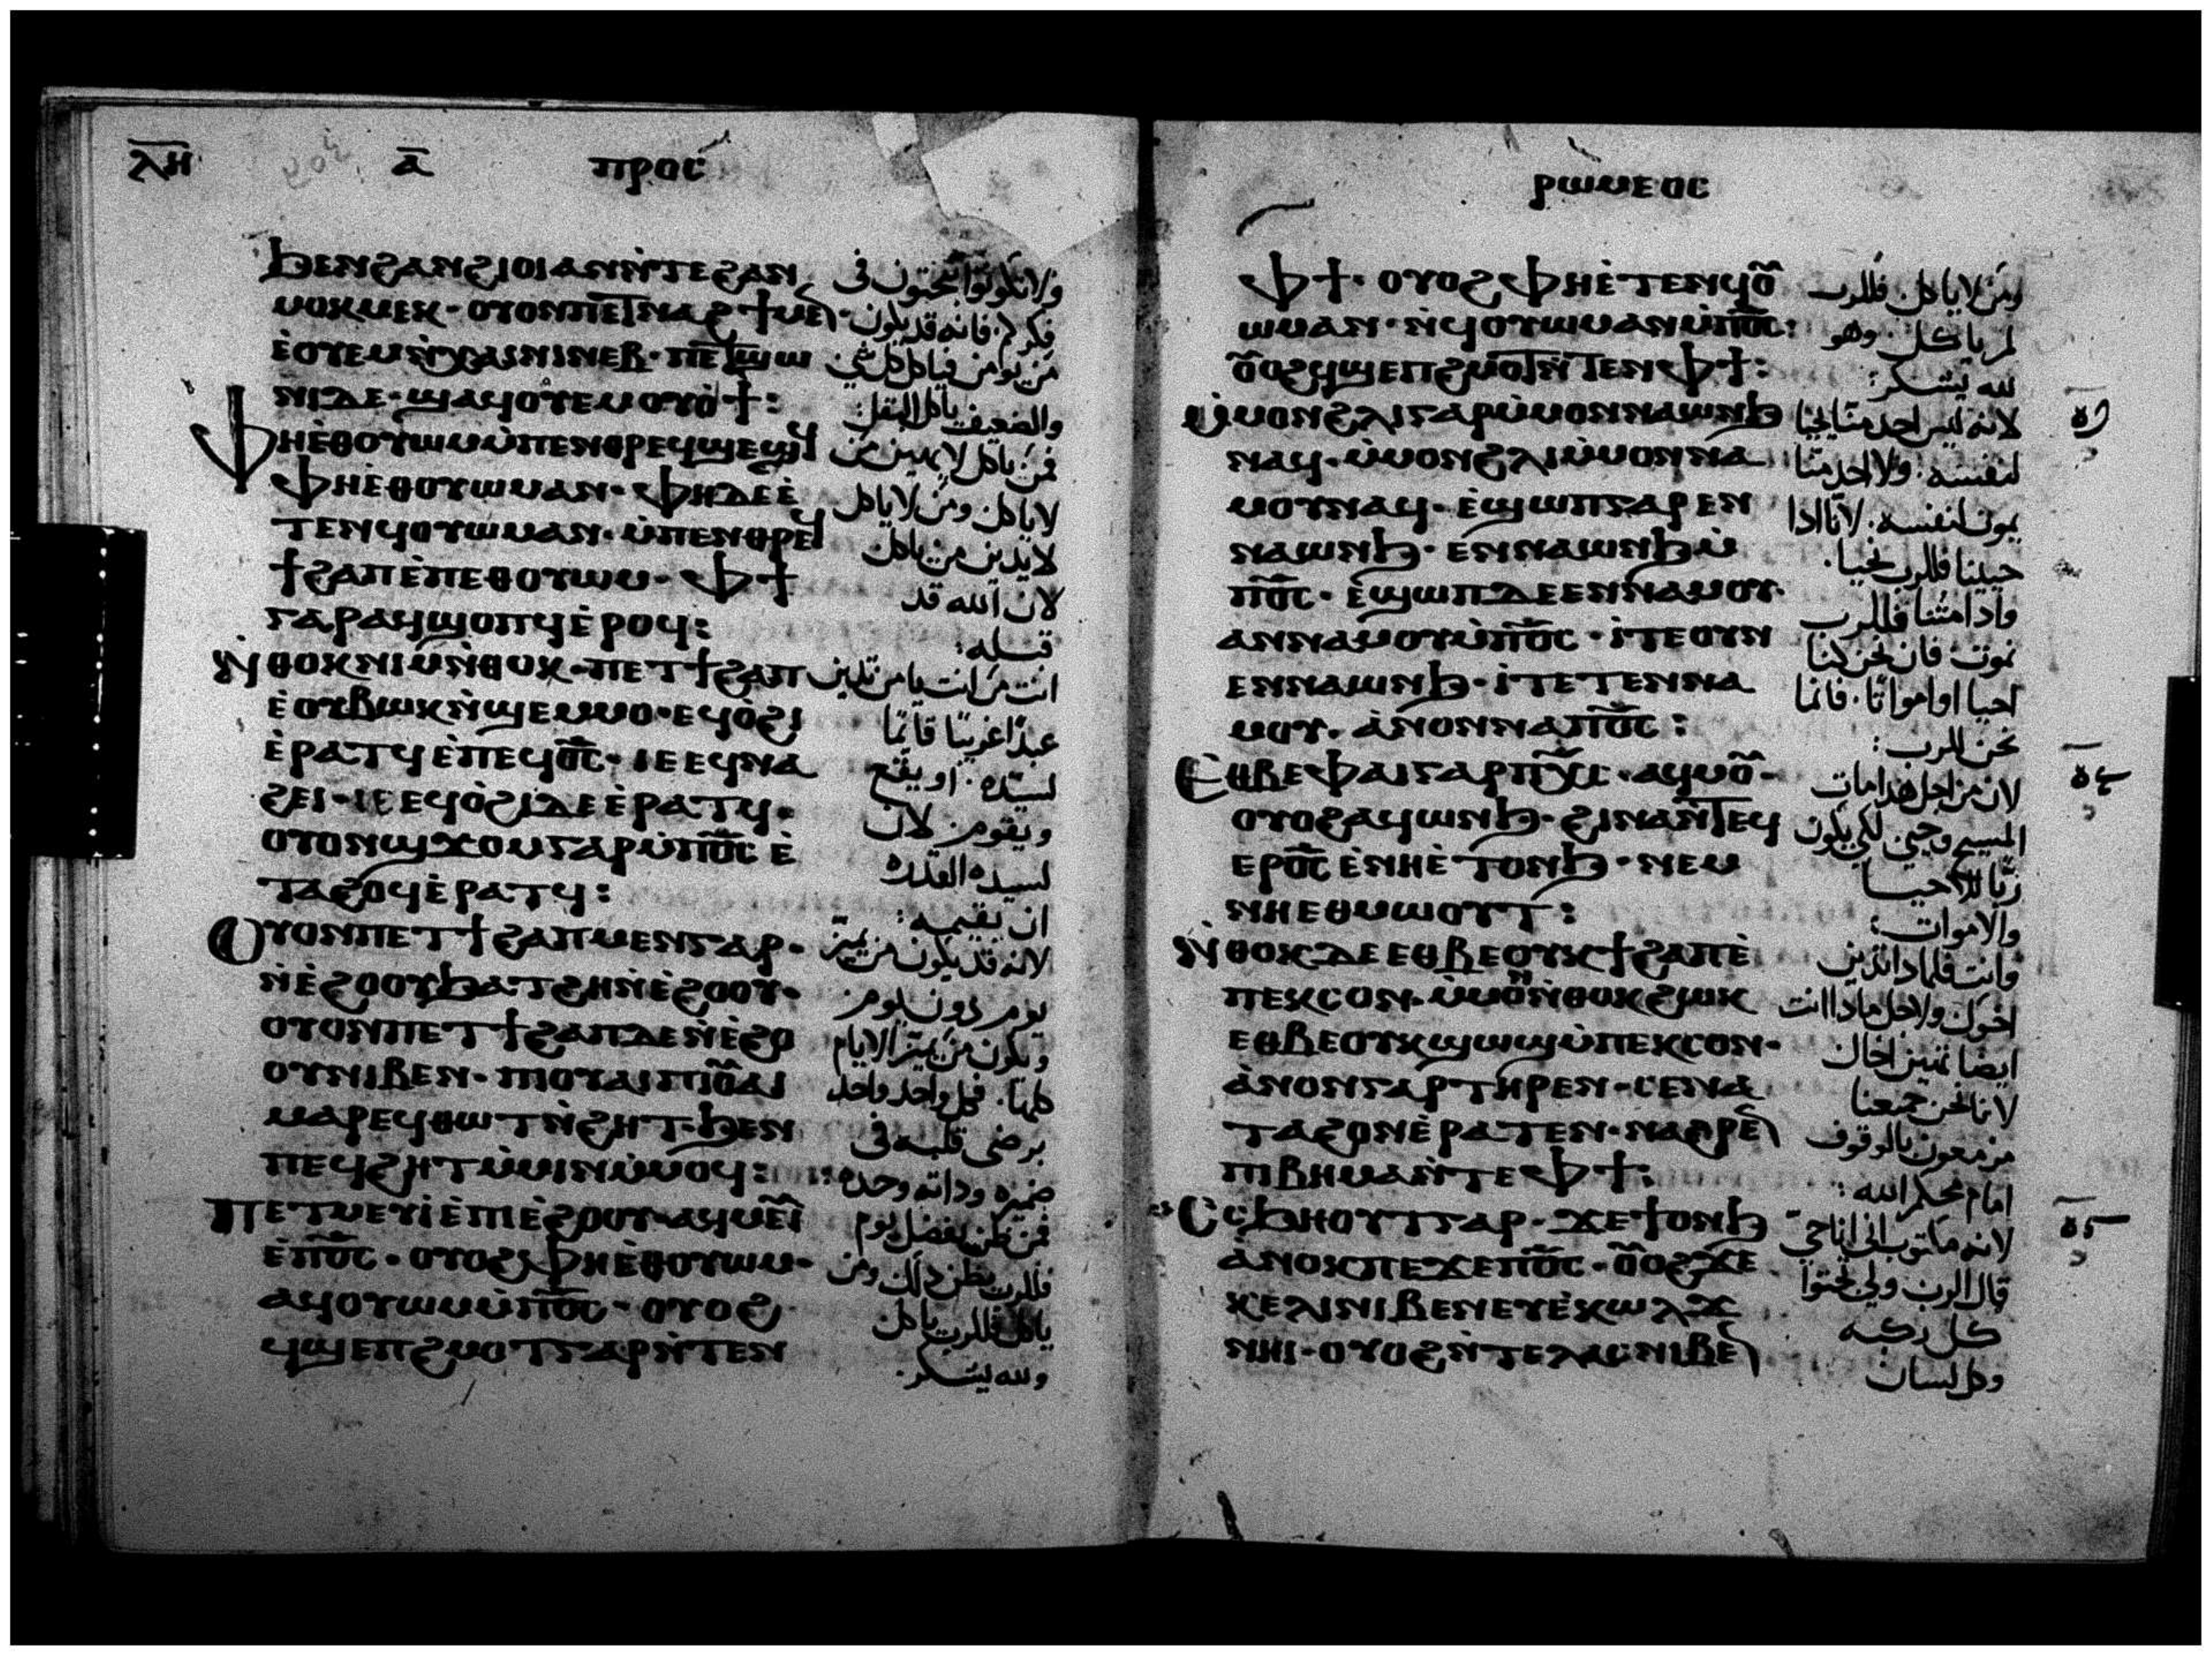 ⲗⲏ ⲁ̅ ⲡⲣⲟⲥ
ϧⲉⲛϩⲁⲛϩⲓⲟⲓⲁⲛⲛ̀ⲧⲉϩⲁⲛ
ⲙⲟⲕⲙⲉⲕ· ⲟⲩⲟⲛⲡⲉⲧⲛⲁϩϯⲙⲉⲛ
ⲉ̀ⲟⲩⲉⲙⲛ̀ⲭⲁⲓⲛⲓⲛⲉⲃ· ⲡⲉⲧϣⲱ
ⲛⲓⲇⲉ· ϣⲁϥⲟⲩⲉⲙⲟⲩⲟ̀ϯ:
ⲫⲏⲉ̀ⲑⲟⲩⲱⲙⲙ̀ⲡⲉⲛⲑⲣⲉϥϣⲉϣϥ
ⲫⲏⲉ̀ⲑⲟⲩⲱⲙⲁⲛ· ⲫⲏⲇⲉⲉ̀
ⲧⲉⲛϥⲟⲩⲱⲙⲁⲛ· ⲙ̀ⲡⲉⲛⲑⲣⲉϥ
ϯϩⲁⲡⲉ̀ⲡⲉⲑⲟⲩⲱⲙ· ⲫϯ
ⲅⲁⲣⲁϥϣⲟⲡϥⲉ̀ⲣⲟϥ:
ⲛ̀ⲑⲟⲕⲛⲓⲙⲛ̀ⲑⲟⲕ· ⲡⲉⲧϯϩⲁⲡ
ⲉ̀ⲟⲩⲃⲱⲕⲛ̀ϣⲉⲙⲙⲟ· ⲉϥⲟ̀ϩⲓ
ⲉ̀ⲣⲁⲧϥⲉ̀ⲡⲉϥⲟ̅ⲥ̅· ⲓⲉⲉϥⲛⲁ
ϩⲉⲓ· ⲓⲉⲉϥⲟ̀ϩⲓⲇⲉⲉ̀ⲣⲁⲧϥ·
ⲟⲩⲟⲛϣϫⲟⲙⲅⲁⲣⲙ̀ⲡⲟ̅ⲥ̅ⲉ̀
ⲧⲁϩⲟϥⲉ̀ⲣⲁⲧϥ:
ⲟⲩⲟⲛⲡⲉⲧϯϩⲁⲡⲙⲉⲛⲅⲁⲣ·
ⲛ̀ⲉ̀ϩⲟⲟⲩϧⲁⲧϩⲏⲛ̀ⲉ̀ϩⲟⲟⲩ·
ⲟⲩⲟⲛⲡⲉⲧϯϩⲁⲡⲇⲉⲛ̀ⲉ̀ϩⲟ
ⲟⲩⲛⲓⲃⲉⲛ· ⲡⲓⲟⲩⲁⲓⲡⲓⲟ̅ⲁⲓ
ⲙⲁⲣⲉϥⲑⲱⲧⲛ̀ϩⲏⲧ· ϧⲉⲛ
ⲡⲉϥϩⲏⲧⲙ̀ⲙⲓⲛⲙ̀ⲙⲟϥ:
ⲡⲉⲧⲙⲉⲩⲓ̀ⲉ̀ⲡⲓⲉ̀ϩⲟⲟⲩ· ⲁϥⲙⲉⲓ̅
ⲉ̀ⲡⲟ̅ⲥ̅· ⲟⲩⲟϩⲫⲏⲉ̀ⲑⲟⲩⲱⲙ·
ⲁϥⲟⲩⲱⲙⲙ̀ⲡⲟ̅ⲥ̅· ⲟⲩⲟϩ
ϥϣⲉⲡϩⲙⲟⲧⲅⲁⲣⲛ̀ⲧⲉⲛ
ولا تكونوا تختون فى
فكركم. فانه قد يكون
من يومن فياكل كل شي
والضعيف ياكل البقل:
فمن ياكل لا يهين من
لا ياكل ومن لا ياكل
لا يدين من ياكل
لان الله قد
قبله:
انت من انت يا من تدين
عبدًا غريبًا قائمًا
لسيّده. او يقع
ويقوم. لان
لسيده القدره
ان يقيمه:
لانه قد يكون من يميّز
يوم دون يوم
ويكون من يميّز الايام
كلها. فكل واحد واحد
يرضى قلبه فى
ضميره وذاته وحده:
فمن ظن بفضل يوم
فللرب يظن ذلك ومن
ياكل فللرب ياكل
ولله يشكر.
ⲣⲱⲙⲉⲟⲥ
ⲫϯ· ⲟⲩⲟϩⲫⲏⲉ̀ⲧⲉⲛϥⲟ̅
ⲱⲙⲁⲛ· ⲛ̀ϥⲟⲩⲱⲙⲁⲛⲙ̀ⲡⲟ̅ⲥ̅:
ⲟ̅ⲟϩϥϣⲉⲡϩⲙⲟⲧⲛ̀ⲧⲉⲛⲫϯ:
ⲙ̀ⲙⲟⲛϩⲗⲓⲅⲁⲣⲙ̀ⲙⲟⲛⲛⲁⲱⲛϧ
ⲛⲁϥ· ⲙ̀ⲙⲟⲛϩⲗⲓⲙ̀ⲙⲟⲛⲛⲁ
ⲙⲟⲩⲛⲁϥ· ⲉ̀ϣⲱⲡⲅⲁⲣⲉⲛ
ⲛⲁⲱⲛϧ· ⲉⲛⲛⲁⲱⲛϧⲙ̀
ⲡⲟ̅ⲥ̅· ⲉ̀ϣⲱⲡⲇⲉⲉⲛⲛⲁⲙⲟⲩ·
ⲁⲛⲛⲁⲙⲟⲩⲙ̀ⲡⲟ̅ⲥ̅· ⲓ̀ⲧⲉⲟⲩⲛ
ⲉⲛⲛⲁⲱⲛϧ· ⲓ̀ⲧⲉⲧⲉⲛⲛⲁ
ⲙⲟⲩ· ⲁ̀ⲛⲟⲛⲛⲁⲡⲟ̅ⲥ̅:
ⲉⲑⲃⲉⲫⲁⲓⲅⲁⲣⲡⲭ̅ⲥ̅· ⲁϥⲙⲟ̅·
ⲟⲩⲟϩⲁϥⲱⲛϧ· ϩⲓⲛⲁⲛ̀ⲧⲉϥ
ⲉⲣⲟ̅ⲥ̅ⲉ̀ⲛⲏⲉ̀ⲧⲟⲛϧ· ⲛⲉⲙ
ⲛⲏⲉⲑⲙⲱⲟⲩⲧ:
ⲛ̀ⲑⲟⲕⲇⲉⲉⲑⲃⲉⲟⲩⲕϯϩⲁⲡⲉ̀
ⲡⲉⲕⲥⲟⲛ· ⲙ̀ⲙⲟⲛⲛ̀ⲑⲟⲕϩⲱⲕ
ⲉⲑⲃⲉⲟⲩⲕϣⲱϣⲙ̀ⲡⲉⲕⲥⲟⲛ·
ⲁ̀ⲛⲟⲛⲅⲁⲣⲧⲏⲣⲉⲛ· ⲥⲉⲛⲁ
ⲧⲁϩⲟⲛⲉ̀ⲣⲁⲧⲉⲛ· ⲛⲁϩⲣⲉⲛ
ⲡⲓⲃⲏⲙⲁⲛ̀ⲧⲉⲫϯ:
ⲥⲥϧⲏⲟⲩⲧⲅⲁⲣ· ϫⲉϯⲟⲛϧ
ⲁ̀ⲛⲟⲕⲡⲉϫⲉⲡⲟ̅ⲥ̅· ⲟ̅ⲟϩϫⲉ
ⲕⲉⲗⲓⲛⲓⲃⲉⲛⲉⲩⲉ̀ⲕⲱⲗϫ
ⲛⲏⲓ· ⲟⲩⲟϩⲛ̀ⲧⲉⲗⲁⲥⲛⲓⲃⲉⲛ
ومن لا ياكل فللرب
لم ياكل. وهو
لله يشكر:
لانه ليس احد منّا يحيا
لنفسه. ولا احد منّا
يموت لنفسه. لانا اذا
حيينا فللرب نحيا.
واذا متنا فللرب
نموت. فان نحن كنا
احيا او امواتًا. فانما
نحن للرب:
لان من اجل هذا مات
المسيح وحيى. لكي يكون
ربًّا للاحيا
والاموات:
وانت فلماذا تدين
اخوك ولاجل ماذا انت
ايضا تهين اخاك
لانا نحن جميعنا
مزمعون بالوقوف
امام محكم الله:
لانه مكتوب انى انا حيّ
قال الرب ولي تجثوا
كل ركبه
وكل لسان